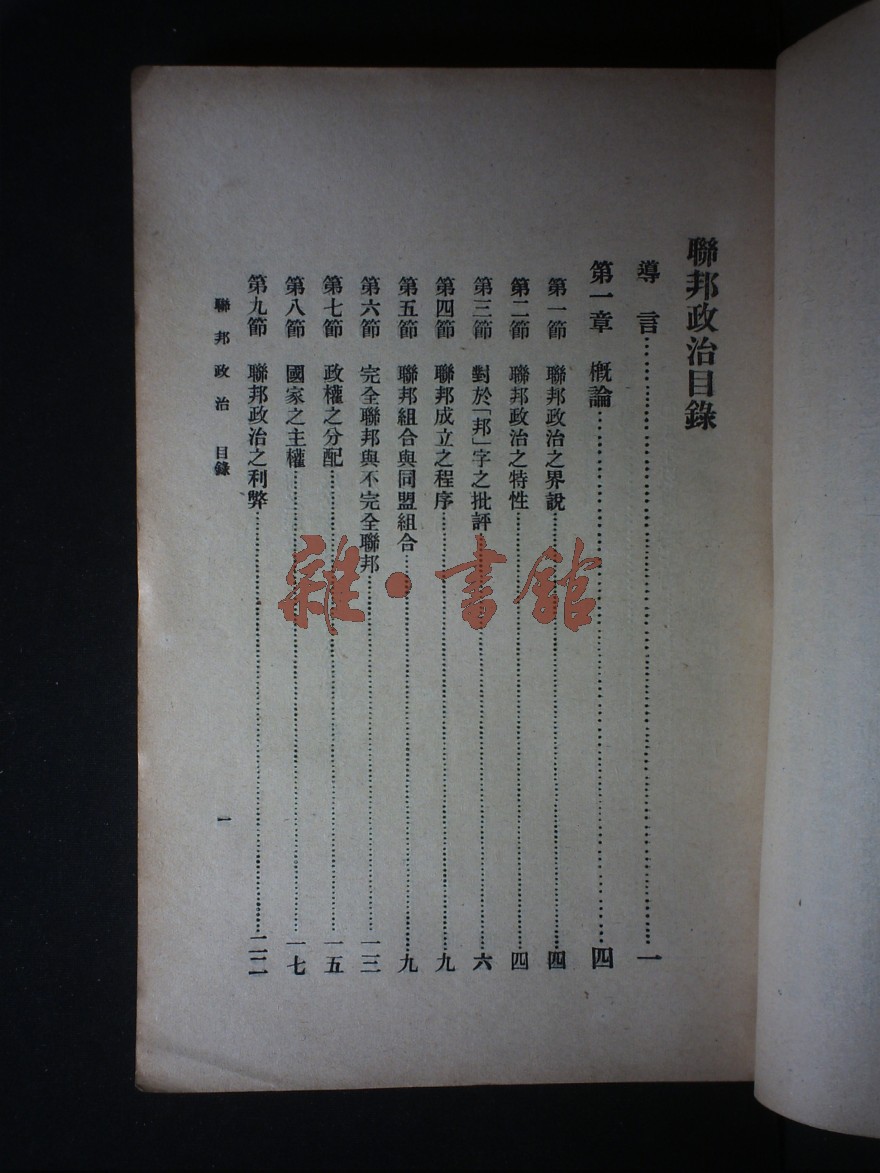 聯邦政治目錄
導言……一
第一章 概論……四
第一節 聯邦政治之界說……四
第二節 聯邦政治之特性……四
第三節 對於「邦」字之批評……六
第四節 聯邦成立之程序……九
第五節 聯邦組合與同盟組合……九
第六節 完全聯邦與不完全聯邦……一三
第七節 政權之分配……一五
第八節 國家之主權……一七
第九節 聯邦政治之利弊……二二
聯邦政治 目錄 一
雜·書館